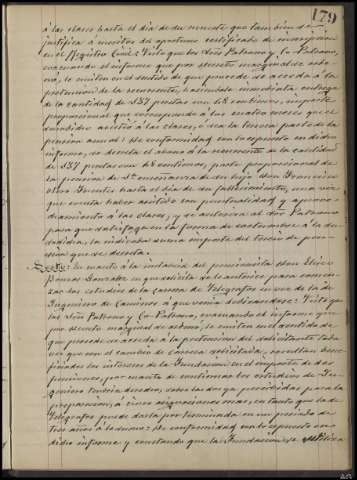 179
á las clases hasta el día de su muerte, que también se
justifica á medios del oportuno certificado de inscripción
en el Registro Civil: Visto que los Sres Patrono y Co-Patrono,
evacuando el informe que por decreto marginal se
les emiten en el sentido de que procede se acceda á la
pretensión de la recurrente, haciéndole inmediata entrega
de la cantidad de 337 pesetas con 68 céntimos, importe
proporcional que corresponde á los cuatro meses que el
susodicho asistió á las clases, ó sea la tercera parte de la
pensión anual: De conformidad con lo expuesto en dicho
informe, se acuerda el abono á la recurrente de la cantidad
de 337 pesetas con 68 céntimos, parte proporcional de
la pensión de 3ª enseñanza de su hijo Don Francisco
Fuentes hasta el día de su fallecimiento, una vez
que consta haber asistido con puntualidad y aprove-
chamiento á las clases, y se autoriza al Sor Patrono
para que satisfaga en la forma de costumbre á la in-
dicada, la indicada suma importe del tercio de pen-
sión que se decreta.
Sexto: En cuanto á la instancia del pensionista Don Eliseo
González en que solicita se le autorice para comen-
zar los estudios de la carrera de Telégrafos en vez de la de
Ingeniero de Caminos á que venía dedicándose: Visto que
los Sres Patrono y Co-Patrono, evacuando el informe que
por decreto marginal se les emiten en el sentido de
que procede se acceda á la pretensión del solicitante toda
vez que con el cambio de carrera solicitada, resultan bene-
ficiados los intereses de la Fundación en el importe de dos
pensiones, por cuanto de continuar los estudios de In-
geniero tendría derecho, sobre las dos ya percibidas para la
preparación, á cinco asignaciones más, en tanto que la de
Telégrafos puede darla por terminada en un periodo de
tres años á lo sumo: De conformidad con lo expuesto en
dicho informe y constando que la Fundación se